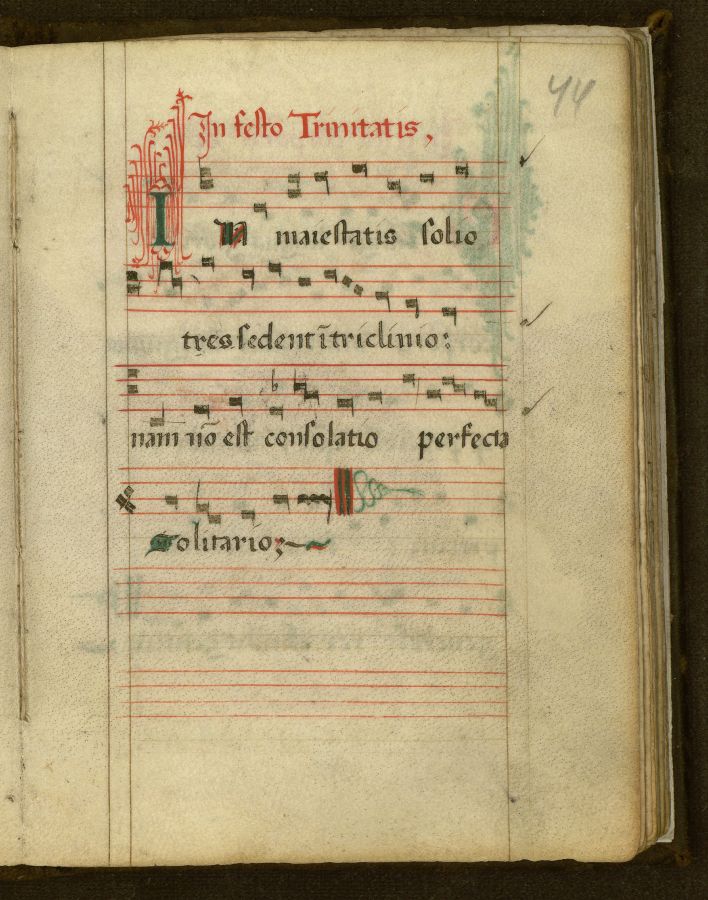 44
In festo Trinitatis,
In maiestatis solio
tres sedent ī triclinio:
nam nō est consolatio perfecta
solitario: